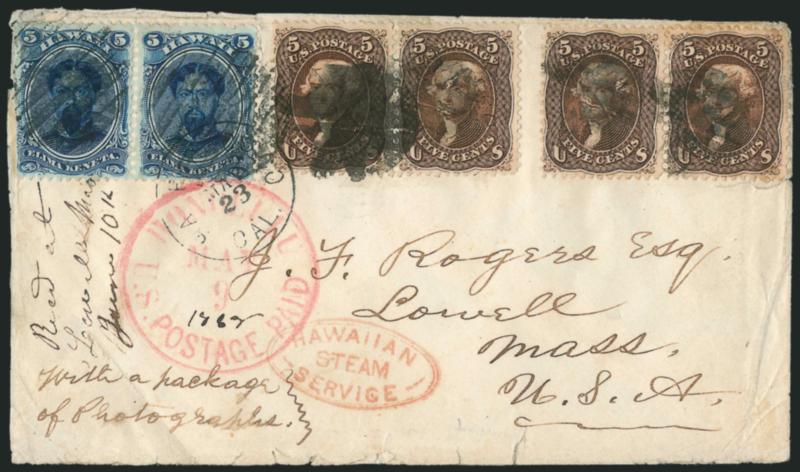 5 HAWAII 5
ELIMA KENETA.
5 HAWAII 5
ELIMA KENETA.
5 5
U.S. POSTAGE
U FIVE CENTS S
5 5
U.S. POSTAGE
U FIVE CENTS S
5 5
U.S. POSTAGE
U FIVE CENTS S
5 5
U.S. POSTAGE
U FIVE CENTS S
23
CAL.
HONOLULU
MAY
9
U.S. POSTAGE PAID
J. F. Rogers Esq.
Lowell
Mass.
U. S. A.
HAWAIIAN
STEAM
SERVICE
Recd at
Lowell Mass
June 10th
With a package
of Photographs.